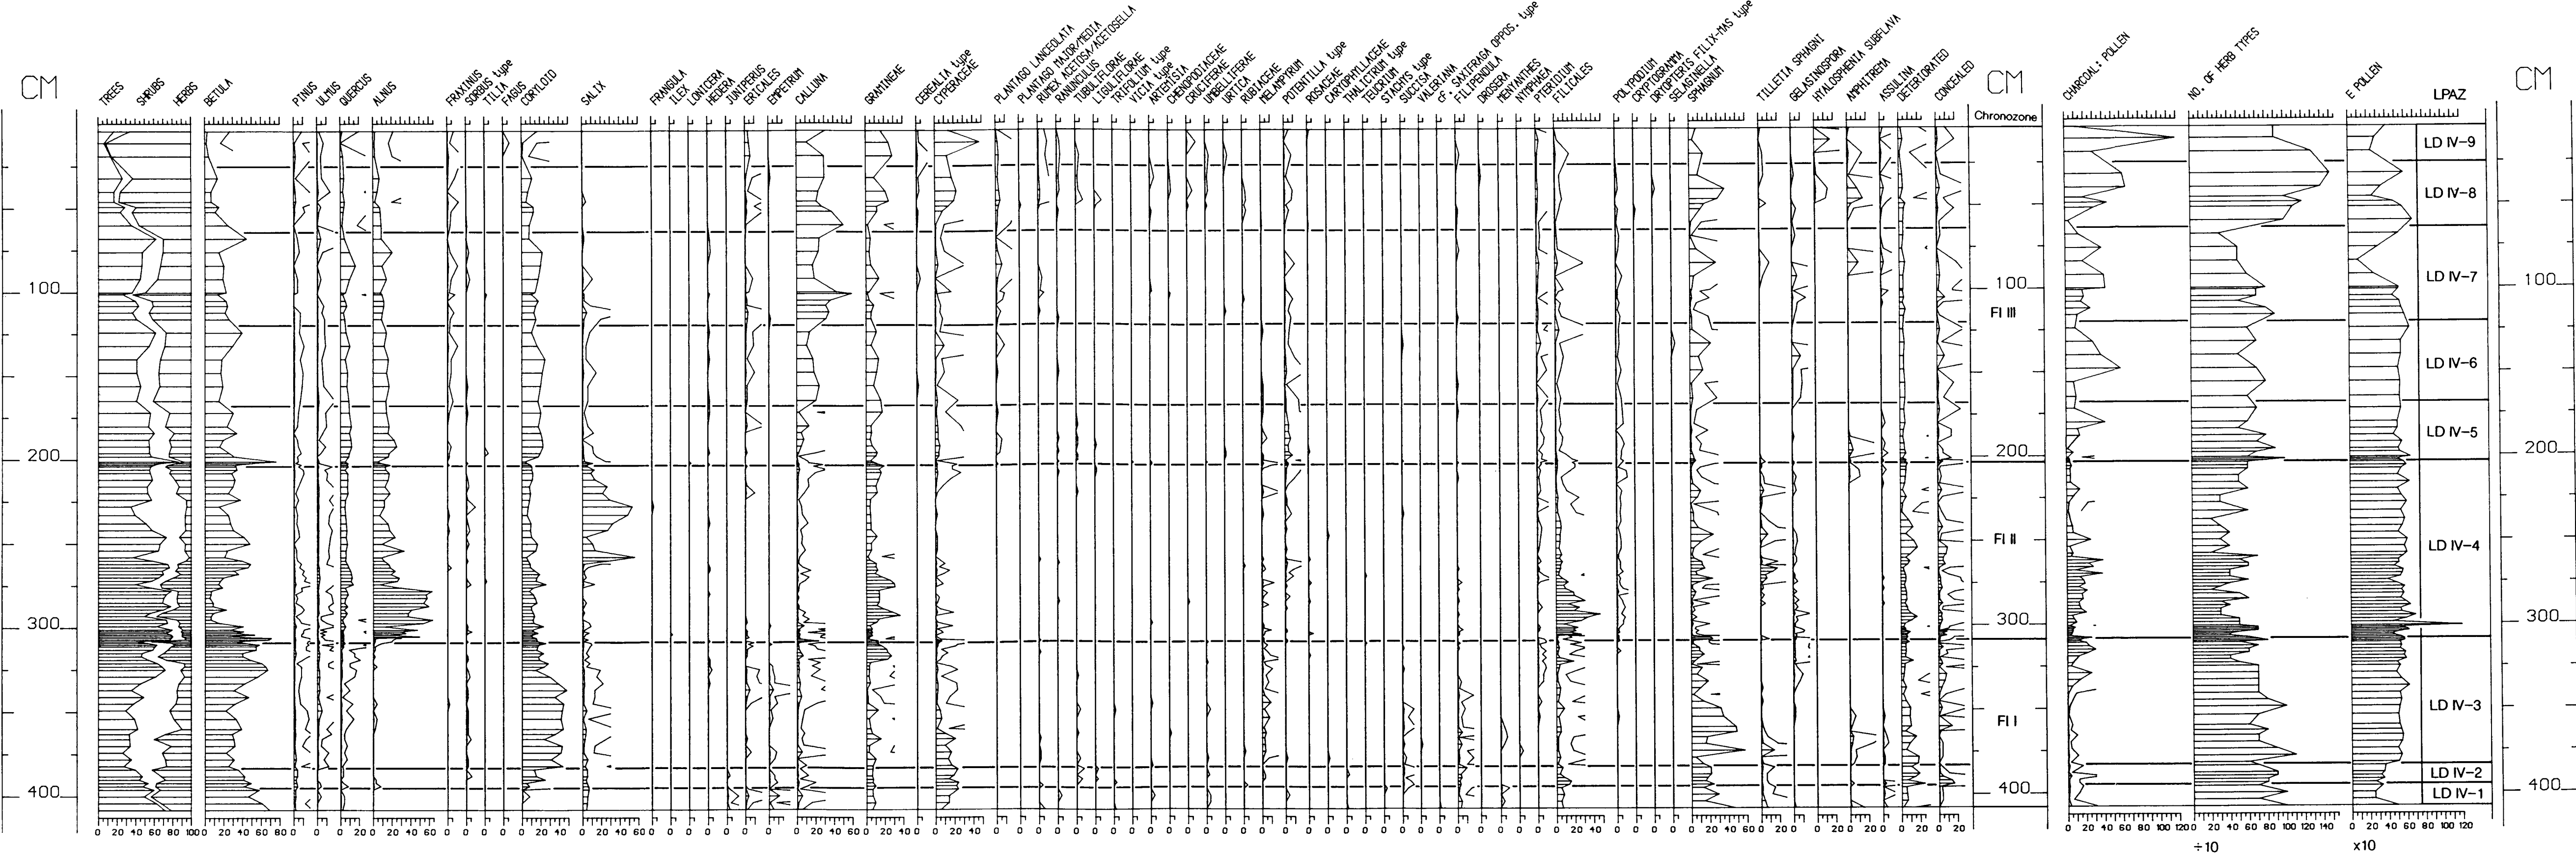 CM
TREES
SHRUBS
HERBS
BETULA
PINUS
ULMUS
QUERCUS
ALNUS
FRAXINUS
SORBUS type
TILIA
FAGUS
CORYLOID
SALIX
FRANGULA
ILEX
LONICERA
HEDERA
JUNIPERUS
ERICALES
EMPETRUM
CALLUNA
GRAMINEAE
CEREALIA type
CYPERACEAE
PLANTAGO LANCEOLATA
PLANTAGO MAJOR/MEDIA
RUMEX ACETOSA/ACETOSELLA
RANUNCULUS
TUBULIFLORAE
LIGULIFLORAE
TRIFOLIUM type
VICIA type
ARTEMISIA
CHENOPODIACEAE
CRUCIFERAE
UMBELLIFERAE
URTICA
RUBIACEAE
MELAMPYRUM
POTENTILLA type
ROSACEAE
CARYOPHYLLACEAE
THALICTRUM type
TEUCRIUM
STACHYS type
SUCCISA
VALERIANA
cf. SAXIFRAGA OPPOS. type
FILIPENDULA
DROSERA
MENYANTHES
NYMPHAEA
PTERIDIUM
FILICALES
POLYPODIUM
CRYPTOGRAMMA
DRYOPTERIS FILIX-MAS type
SELAGINELLA
SPHAGNUM
TILLETIA SPHAGNI
GELASINOSPORA
HYALOSPHENIA SUBFLAVA
AMPHITREMA
ASSULINA
DETERIORATED
CONCEALED
CM
Chronozone
CHARCOAL: POLLEN
NO. OF HERB TYPES
E POLLEN
LPAZ
CM
LD IV-9
LD IV-8
100 100 LD IV-7 100
Fl III
LD IV-6
LD IV-5
200 200 200
Fl II
LD IV-4
300 300 300
Fl I
LD IV-3
LD IV-2
400 400 LD IV-1 400
0 20 40 60 80 100
0 20 40 60 80
0 20 40 60
0 20 40
0 20 40 60
0 20 40 60
0 20 40
0 20 40
0 20 40
0 20 40 60
0 20 40 60 80 100 120
0 20 40 60 80 100 120 140
0 20 40 60 80 100 120
÷10
x10